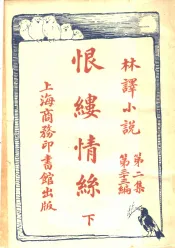 林譯小說
第二集
第三編
恨縷情絲
下
上海商務印書館出版